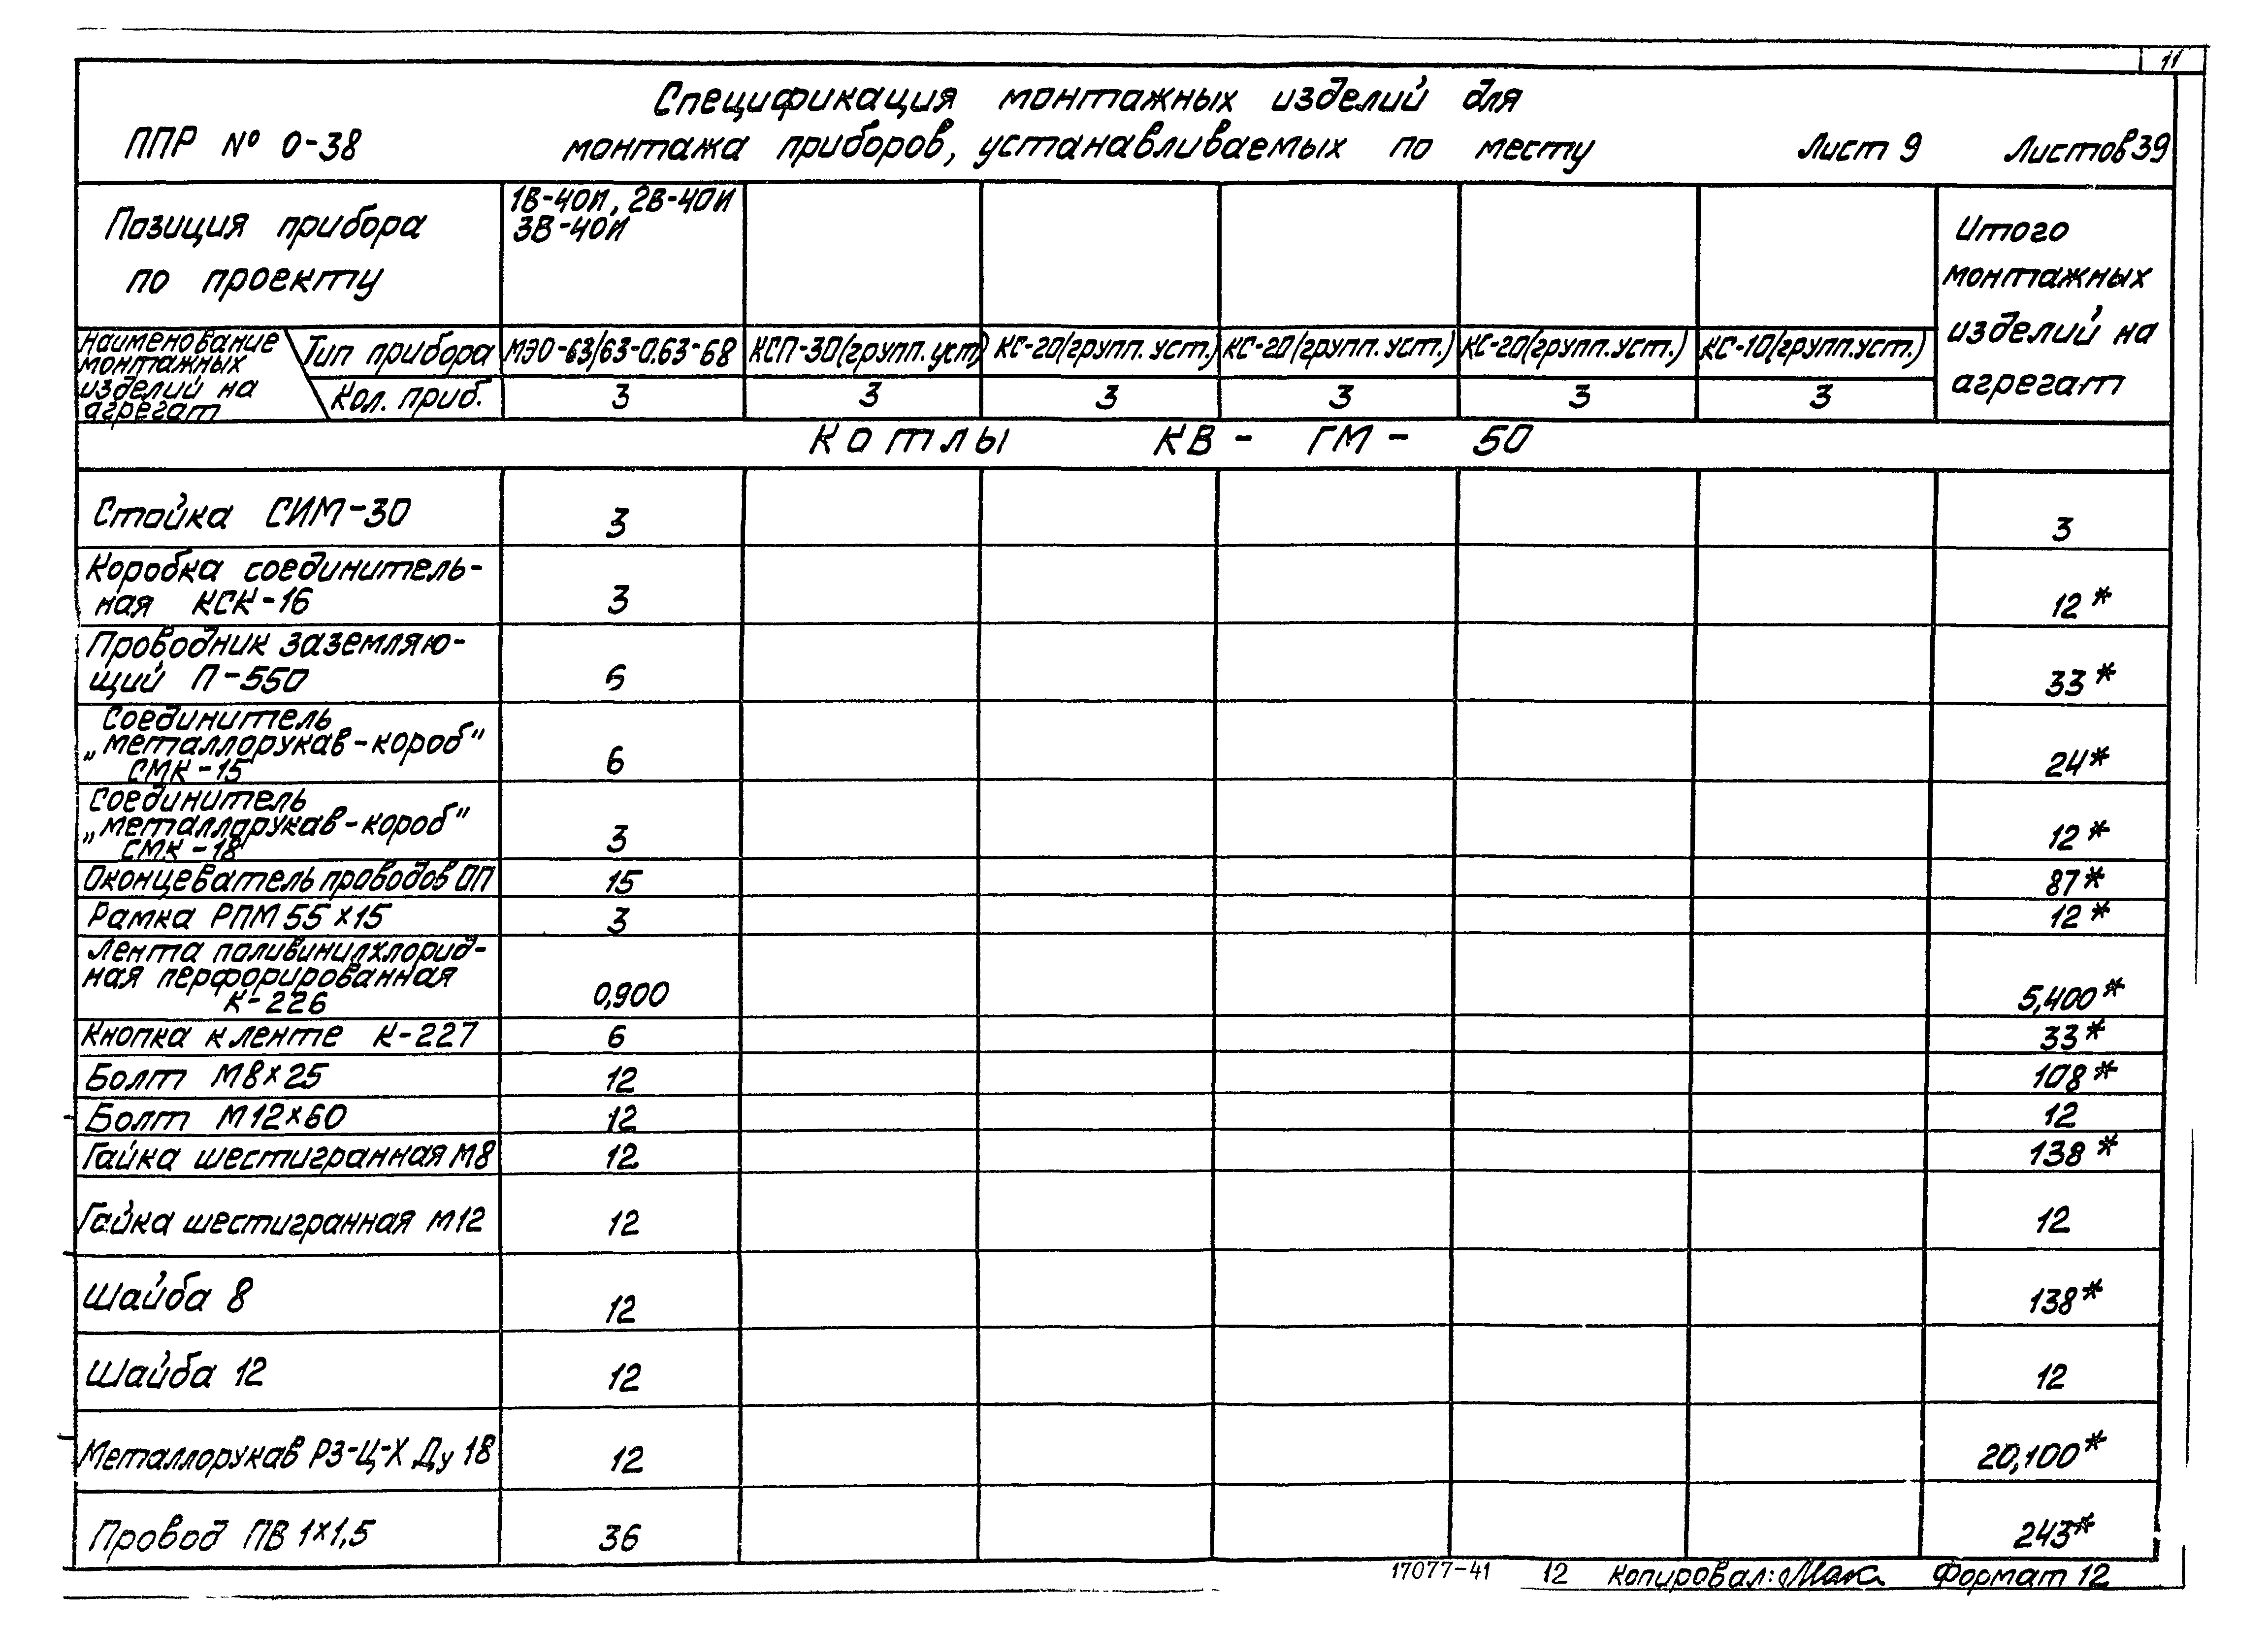 11
Спецификация монтажных изделий для
ППР № 0-38 монтажа приборов, устанавливаемых по месту Лист 9 Листов 39
Позиция прибора
по проекту
1В-40И, 2В-40И
3В-40И
Итого
монтажных
изделий на
агрегат
Наименование
монтажных
изделий на
агрегат
Тип прибора МЭО-63/63-0.63-68 КСП-30(групп.уст) КС-20(групп.уст.) КС-20(групп.уст.) КС-20(групп.уст.) КС-10(групп.уст.)
Кол. приб. 3 3 3 3 3 3
Котлы КВ - ГМ - 50
Стойка СИМ-30 3 3
Коробка соединитель-
ная КСК-16 3 12*
Проводник заземляю-
щий П-550 6 33*
Соединитель
„металлорукав-короб"
СМК-15 6 24*
Соединитель
„металлорукав-короб"
СМК-18 3 12*
Оконцеватель проводов ОП 15 87*
Рамка РПМ 55×15 3 12*
Лента поливинилхлорид-
ная перфорированная
К-226 0,900 5,400*
Кнопка к ленте К-227 6 33*
Болт М8×25 12 108*
Болт М12×60 12 12
Гайка шестигранная М8 12 138*
Гайка шестигранная М12 12 12
Шайба 8 12 138*
Шайба 12 12 12
Металлорукав РЗ-Ц-Х Ду 18 12 20,100*
Провод ПВ 1×1,5 36 243*
17077-41 12 Копировал: Формат 12